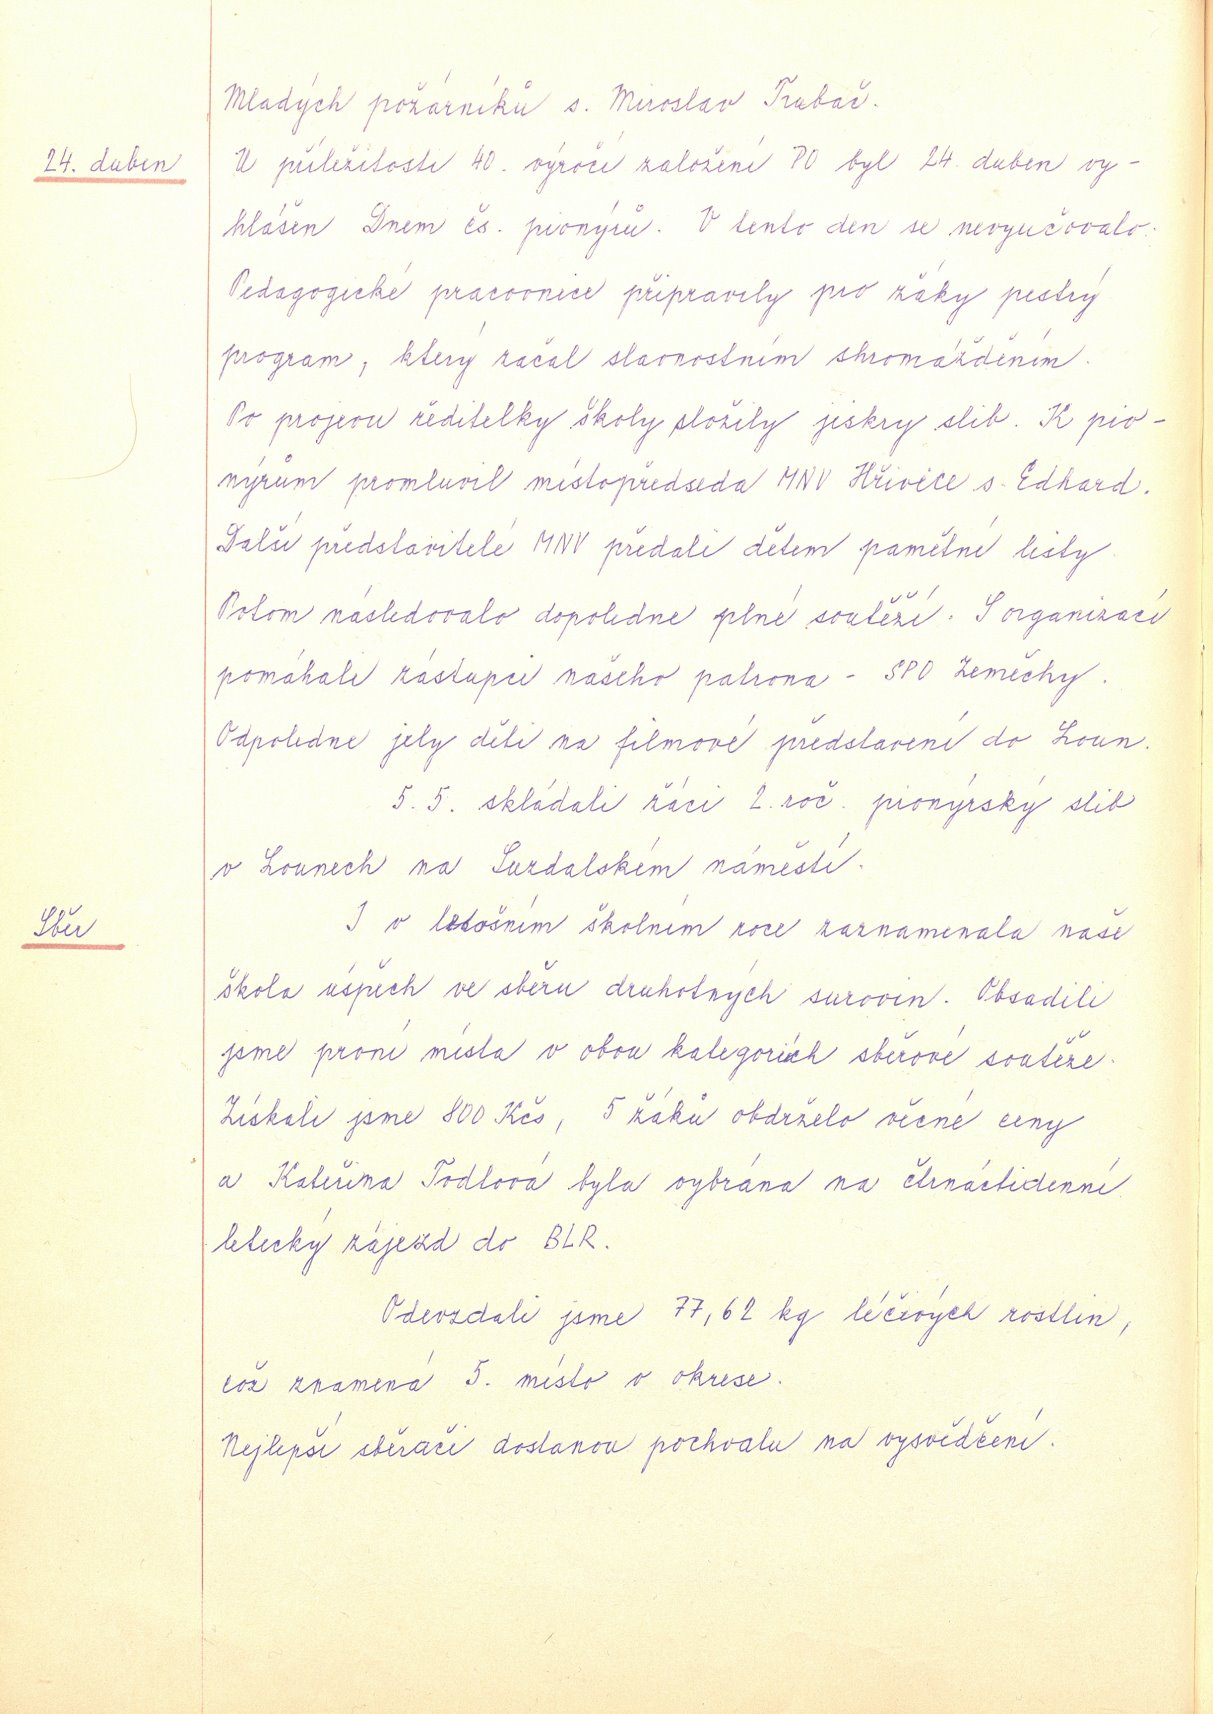 Mladých požárníků s. Miroslav Trubač.
24. duben
U příležitosti 40. výročí založení PO byl 24. duben vy-
hlášen Dnem čs. pionýrů. V tento den se nevyučovalo.
Pedagogické pracovnice připravily pro žáky pestrý
program, který začal slavnostním shromážděním.
Po projevu ředitelky školy složily jiskry slib. K pio-
nýrům promluvil místopředseda MNV Hřivice s. Edhard.
Další představitelé MNV předali dětem pamětní listy
Potom následovalo dopoledne plné soutěží. S organizací
pomáhali zástupci našeho patrona - SPO Zeměchy.
Odpoledne jely děti na filmové představení do Loun.
5. 5. skládali žáci 2. roč. pionýrský slib
v Lounech na Suzdalském náměstí.
Sběr
I v letošním školním roce zaznamenala naše
škola úspěch ve sběru druhotných surovin. Obsadili
jsme první místa v obou kategoriích sběrové soutěže.
Získali jsme 800 Kčs, 5 žáků obdrželo věcné ceny
a Kateřina Todlová byla vybrána na čtrnáctidenní
letecký zájezd do BLR.
Odevzdali jsme 77,62 kg léčivých rostlin,
což znamená 5. místo v okrese.
Nejlepší sběrači dostanou pochvalu na vysvědčení.